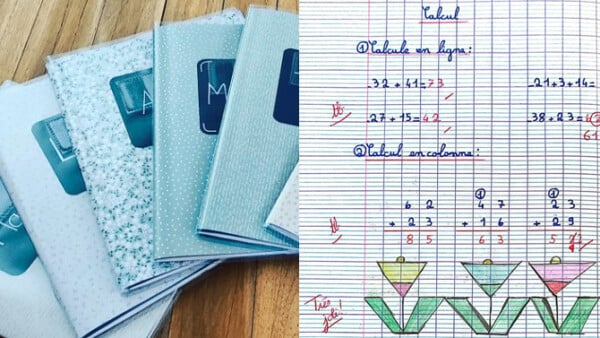 L
A
M
Calcul
① Calcule en ligne:
32 + 41 = 73
21 + 3 + 14 =
tb
27 + 15 = 42
38 + 23 =
61
② Calcul en colonne:
① ①
6 2 4 7 2 3
+ 2 3 + 1 6 + 2 9
tb
8 5 6 3 5
Très
joli!